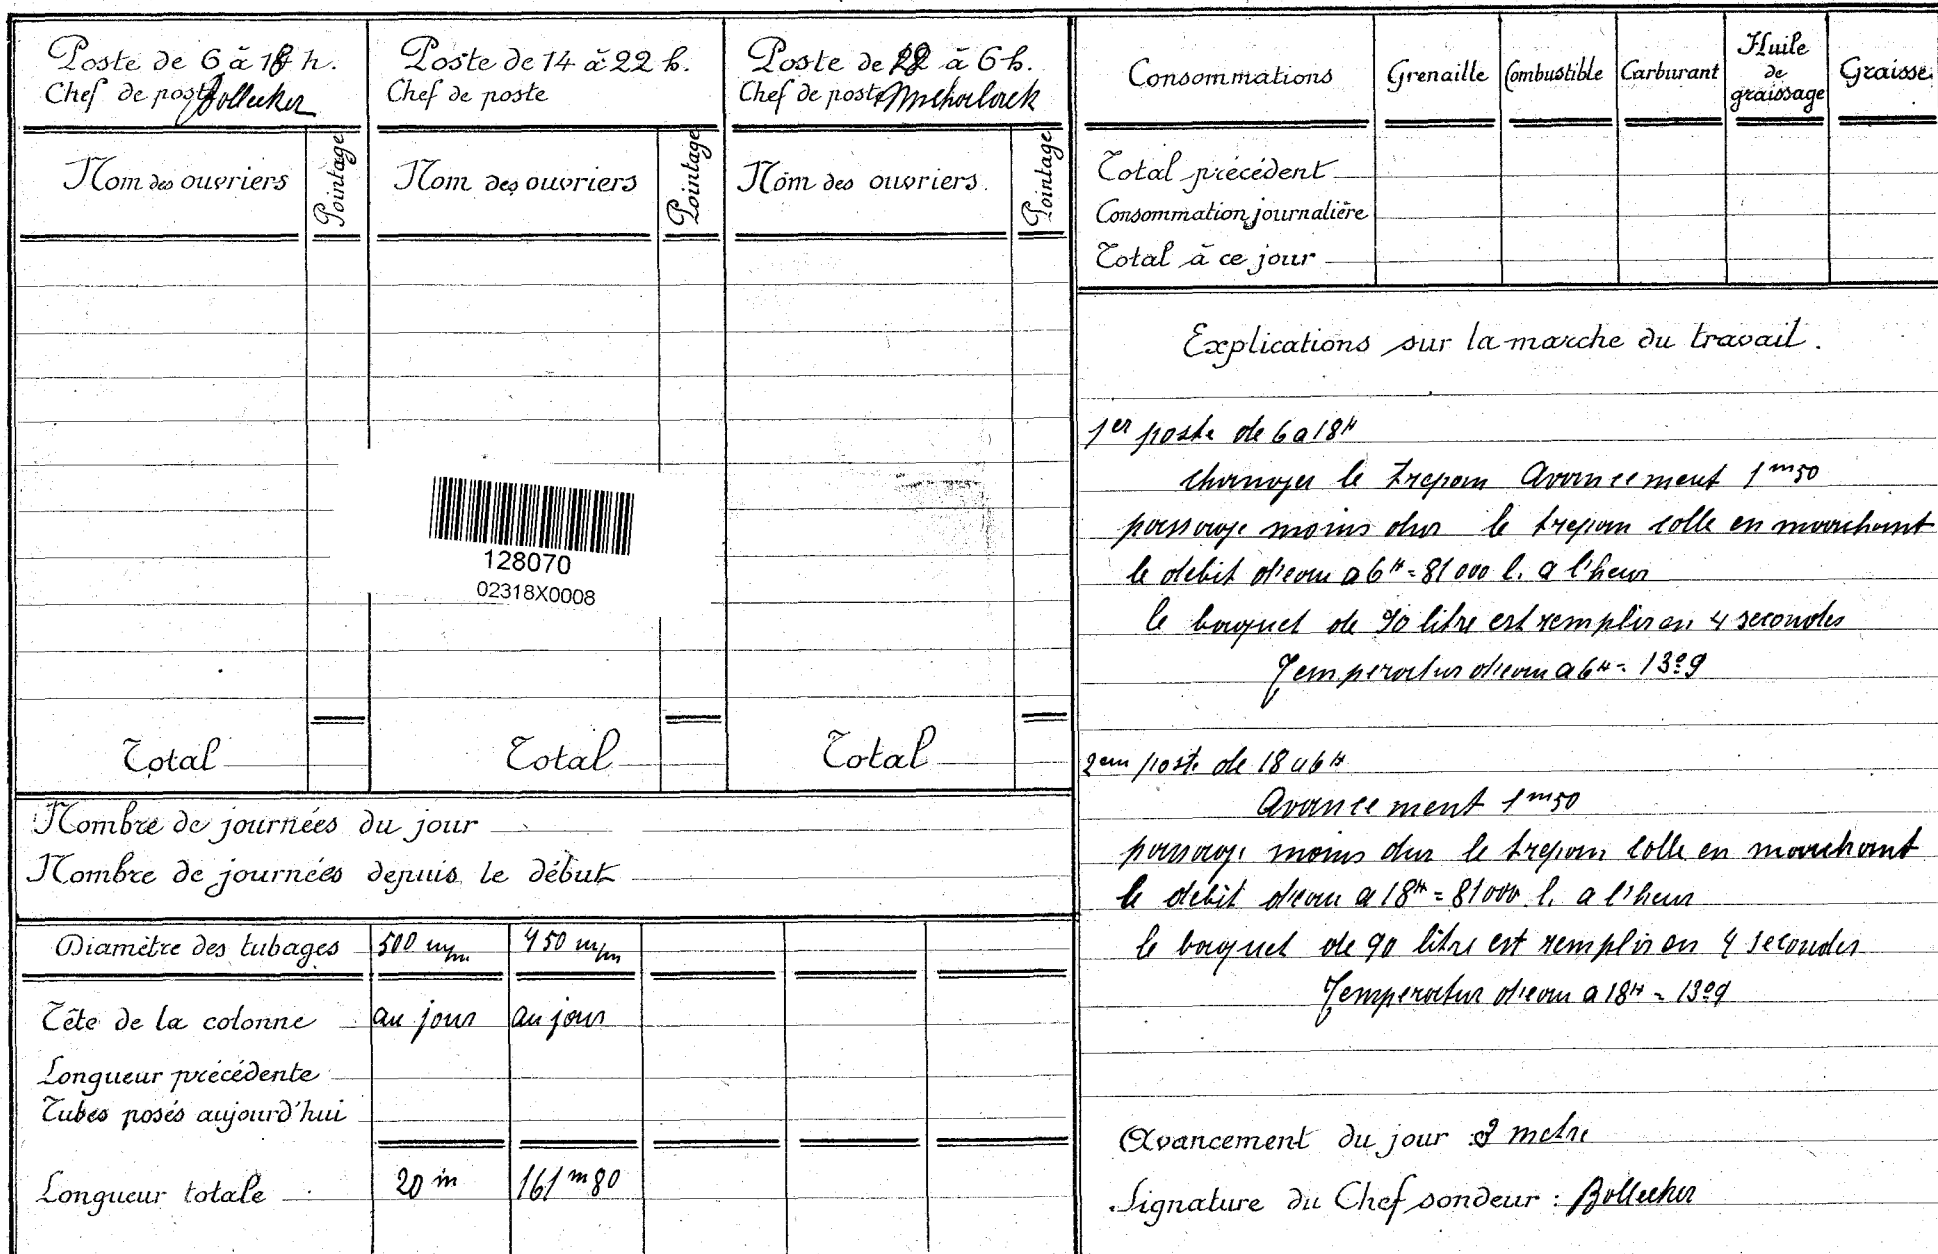 Poste de 6 à 18 h.
Chef de poste Bollecker
Poste de 14 à 22 h.
Chef de poste
Poste de 18 à 6 h.
Chef de poste
Nom des ouvriers
Pointage
Nom des ouvriers
Pointage
Nom des ouvriers
Pointage
128070
02318X0008
Total
Total
Total
Nombre de journées du jour
Nombre de journées depuis le début
Diamètre des tubages 500 m/m 450 m/m
Tête de la colonne au jour au jour
Longueur précédente
Tubes posés aujourd'hui
Longueur totale 20 m 161 m 80
Consommations Grenaille Combustible Carburant Huile de graissage Graisse
Total précédent
Consommation journalière
Total à ce jour
Explications sur la marche du travail.
1er poste de 6 a 18 H
changer le trepan Avancement 1 m 50
passage moins dur le trepan colle en marchant
le debit d'eau a 6 H = 81000 l. a l'heur
le baquet de 90 litre est remplir en 4 secondes
Temperatur d'eau a 6 H = 13°9
2em poste de 18 a 6 H
Avancement 1 m 50
passage moins dur le trepan colle en marchant
le debit d'eau a 18 H = 81000 l. a l'heur
le baquet de 90 litre est remplir en 4 secondes
Temperatur d'eau a 18 H = 13°9
Avancement du jour : 3 metre
Signature du Chef sondeur : Bollecker